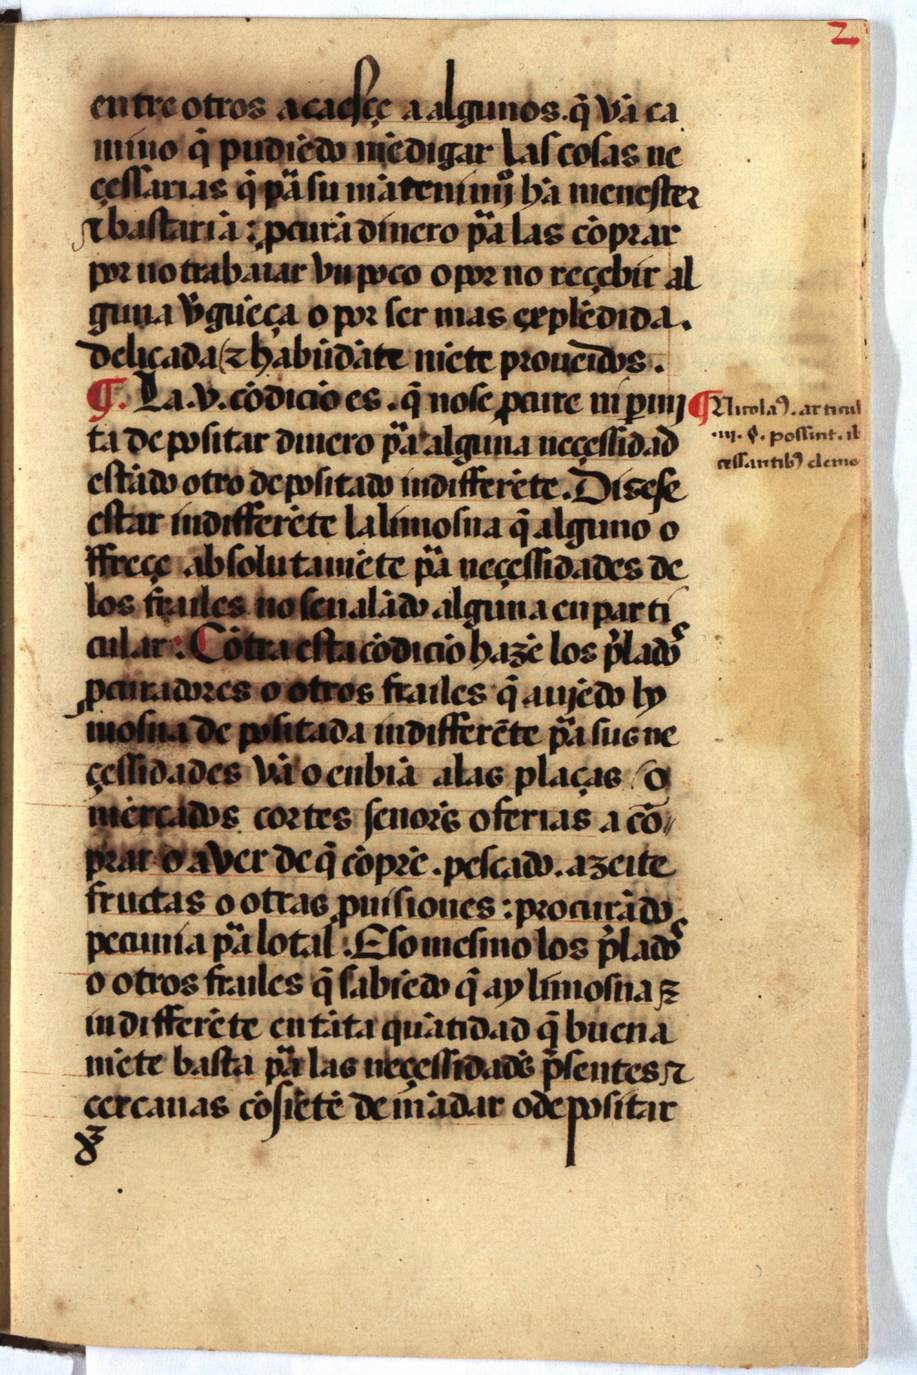 2
entre otros acaesçe a algunos. q̃ vã ca
mino q̃ pudiẽdo mẽdigar las cosas ne
çessarias q̃ pã su mãtenimjº hã menester
⁊ bastariã : ꝓcurã dinero pã las cõprar
por no trabaiar vn poco o por no reçebir al
guna ṽguẽça o por ser mas explẽdida.
deliçada ⁊ habũdãte mẽte proueidos.
¶. La .v. cõdiciõ es. q̃ no se ꝓcure ni ꝑmj
ta depositar dinero pã alguna neçessidad
estãdo otro depositado indifferẽte. Dizese
estar indifferẽte la limosna q̃ alguno o
ffreçe absolutamẽte pã neçessidades de
los frailes no senalãdo alguna en parti
cular : Cõtra esta cõdiciõ hazẽ los p̃lados
ꝓcuradores o otros frailes q̃ aujẽdo ly
mosna depositada indifferẽte pã sus ne
çessidades vã o enbiã a las plaças o
mercados cortes senorẽs o ferias a cõ
prar o aver de q̃ cõprẽ. pescado. azeite
fructas o otras ꝓuisiones : procurãdo
pecunia pã lo tal. Eso mesmo los p̃lados
o otros frailes q̃ sabiẽdo q̃ ay limosna ⁊
indifferẽte en tãta quãtidad q̃ buena
mẽte basta pã las neçessidadẽs p̃sentes ⁊
cercanas cõsiẽtẽ demãdar o depositar
¶ Nicolaꝰ. articul
.iij. ꝙ. possint. il
cessantibꝰ elemo